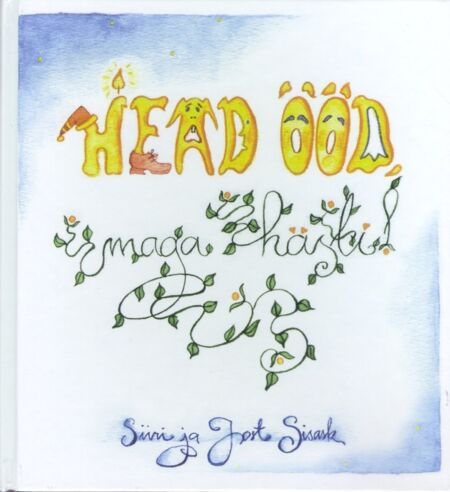 HEAD ÖÖD,
maga hästi!
Siiri ja Jost Sisask